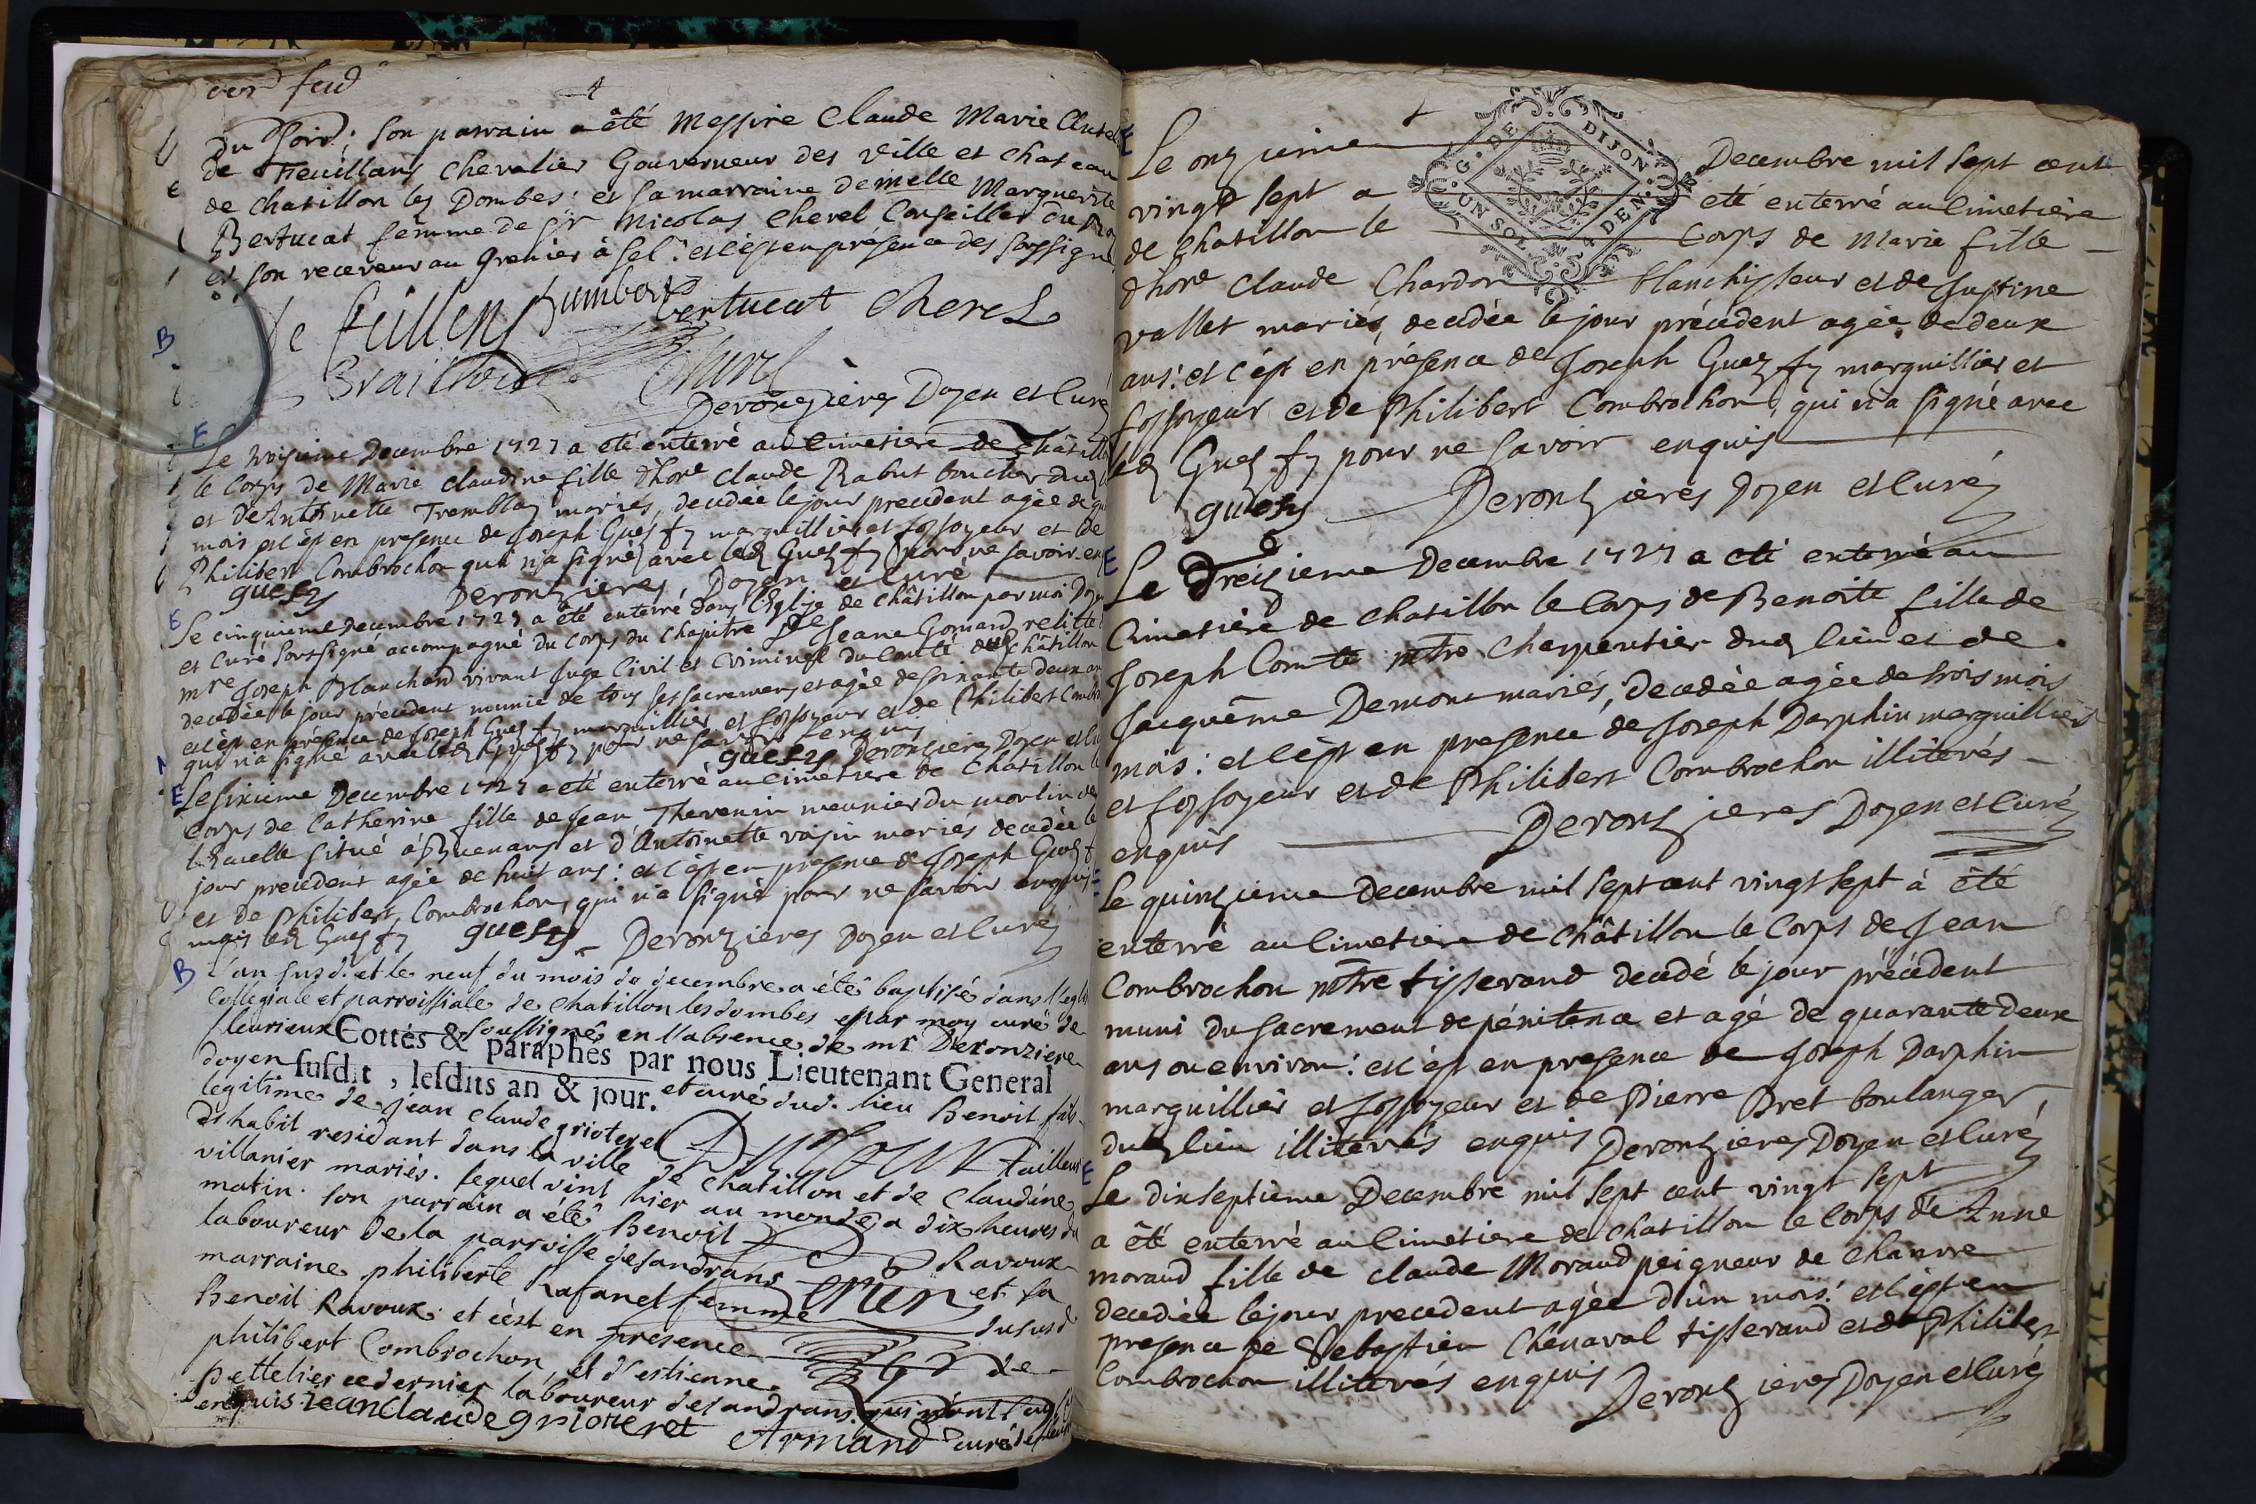 du soir; son parrain a été Messire Claude Marie
de Fieuillans Chevalier Gouverneur des ville et chateau
de chatillon les Dombes: et sa marraine demelle Marguerite
Bertucat femme de Sr Nicolas Cherel Conseiller du
et son receveur au Grenier à Sel: et c'est en présence des soussignés
de feillens humbert bertucat cherel
Derontzieres Doyen et Curé
Le troisieme Decembre 1727 a été enterré au Cimetiere de Châtillon
le Corps de Marie Claudine fille d'hore Claude Rabut boucher dud
et de Antoinette Tremblay mariés, decedée le jour precedent agée de
mois et c'est en presence de Joseph Guesfy marguillier et fossoyeur et de
Philibert Combrochon qui n'a signé avec led Guesfy pour ne savoir
guesfy Derontzieres Doyen et Curé
Le cinquieme Decembre 1727 a été enterré dans l'Eglise de Châtillon par moi Doyen
et Curé soussigné accompagné du Corps du Chapitre Jeane Gomard relicte
mre Joseph Blanchard vivant Juge Civil et Criminel du Comté dud Châtillon
decedée le jour précedent munie de tous ses sacremens et agée de soixante deux ans
et c'est en présence de Joseph Guesfy marguillier et fossoyeur et de Philibert
qui n'a signé avec led Guesfy pour ne savoir enquis
guesfy Derontzieres Doyen et
Le sixieme Decembre 1727 a été enterré au Cimetiere de Chatillon le
Corps de Catherine fille de Jean Thevenin meunier du moulin de
situé à Buenans et d'Antoinette vasin mariés decedée le
jour precedent agée de huit ans: et c'est en presence de Joseph
et de Philibert Combrochon, qui n'a signé pour ne savoir enquis
mais led Guesfy guesfy Derontzieres Doyen et Curé
L'an susd. et le neuf du mois de decembre a été baptisé dans l'eglise
Collegiale et parroissiale de chatillon les dombes par moy curé de
fleurieux soussigné en l'absence de mr Deronziere
Cottés & paraphés par nous Lieutenant General
susdit, lesdits an & jour.
doyen et curé dud. lieu Benoit fils
legitime de jean claude grioteret tailleur
d'habit residant dans la ville de chatillon et de Claudine
villanier mariés. lequel vint hier au monde a dix heures du
matin. son parrain a été Benoit Ravoux
laboureur de la parroisse de sandrans et sa
marraine philiberte Rafanel femme dususd
Benoit Ravoux: et c'est en présence de
philibert Combrochon, et d'estienne
Pettelier ce dernier laboureur de sandrans
enquis jean claude grioteret Armand curé de
Le onzieme Decembre mil sept cent
vingt sept a été enterré au Cimetière
de Chatillon le Corps de Marie fille
d'hore Claude Chardon blanchisseur et de Justine
vallet mariés, decedée le jour précedent agée de deux
ans: et c'est en présence de Joseph Guesfy marguillier et
fossoyeur et de Philibert Combrochon, qui n'a signé avec
led Guesfy pour ne savoir enquis
guesfy Derontzieres Doyen et Curé
G. DE DIJON
UN SOL 4 DEN.
Le Treizieme Decembre 1727 a eté enterré au
Cimetière de Chatillon le Corps de Benoite fille de
Joseph Comte mtre Charpentier dud lieu et de
Jacquême Demont mariés, decedée agée de trois mois
mois: et c'est en presence de Joseph Darphin marguillier
et fossoyeur et de Philibert Combrochon illiterés
enquis Derontzieres Doyen et Curé
Le quinzieme decembre mil sept cent vingt sept à été
enterré au Cimetiere de Châtillon le Corps de Jean
Combrochon mtre tisserand decedé le jour précédent
muni du sacrement de pénitence et agé de quarante deux
ans ou environ: et c'est en presence de Joseph Darphin
marguillier et fossoyeur et de Pierre Bret boulanger
dud lieu illiterés enquis Derontzieres Doyen et Curé
Le dixseptieme Decembre mil sept cent vingt sept
a été enterré au Cimetiere de Chatillon le Corps de Anne
morand fille de Claude Morand peigneur de Chanvre
decedée le jour precedent agée d'un mois: et c'est en
presence de Sebastien Chenaval tisserand et de Philibert
Combrochon illiterés enquis Derontzieres Doyen et Curé